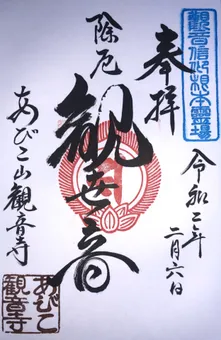 觀音信仰根本霊場
奉拝
令和二年
二月六日
除厄
観世音
あびこ山観音寺
あびこ
観音寺